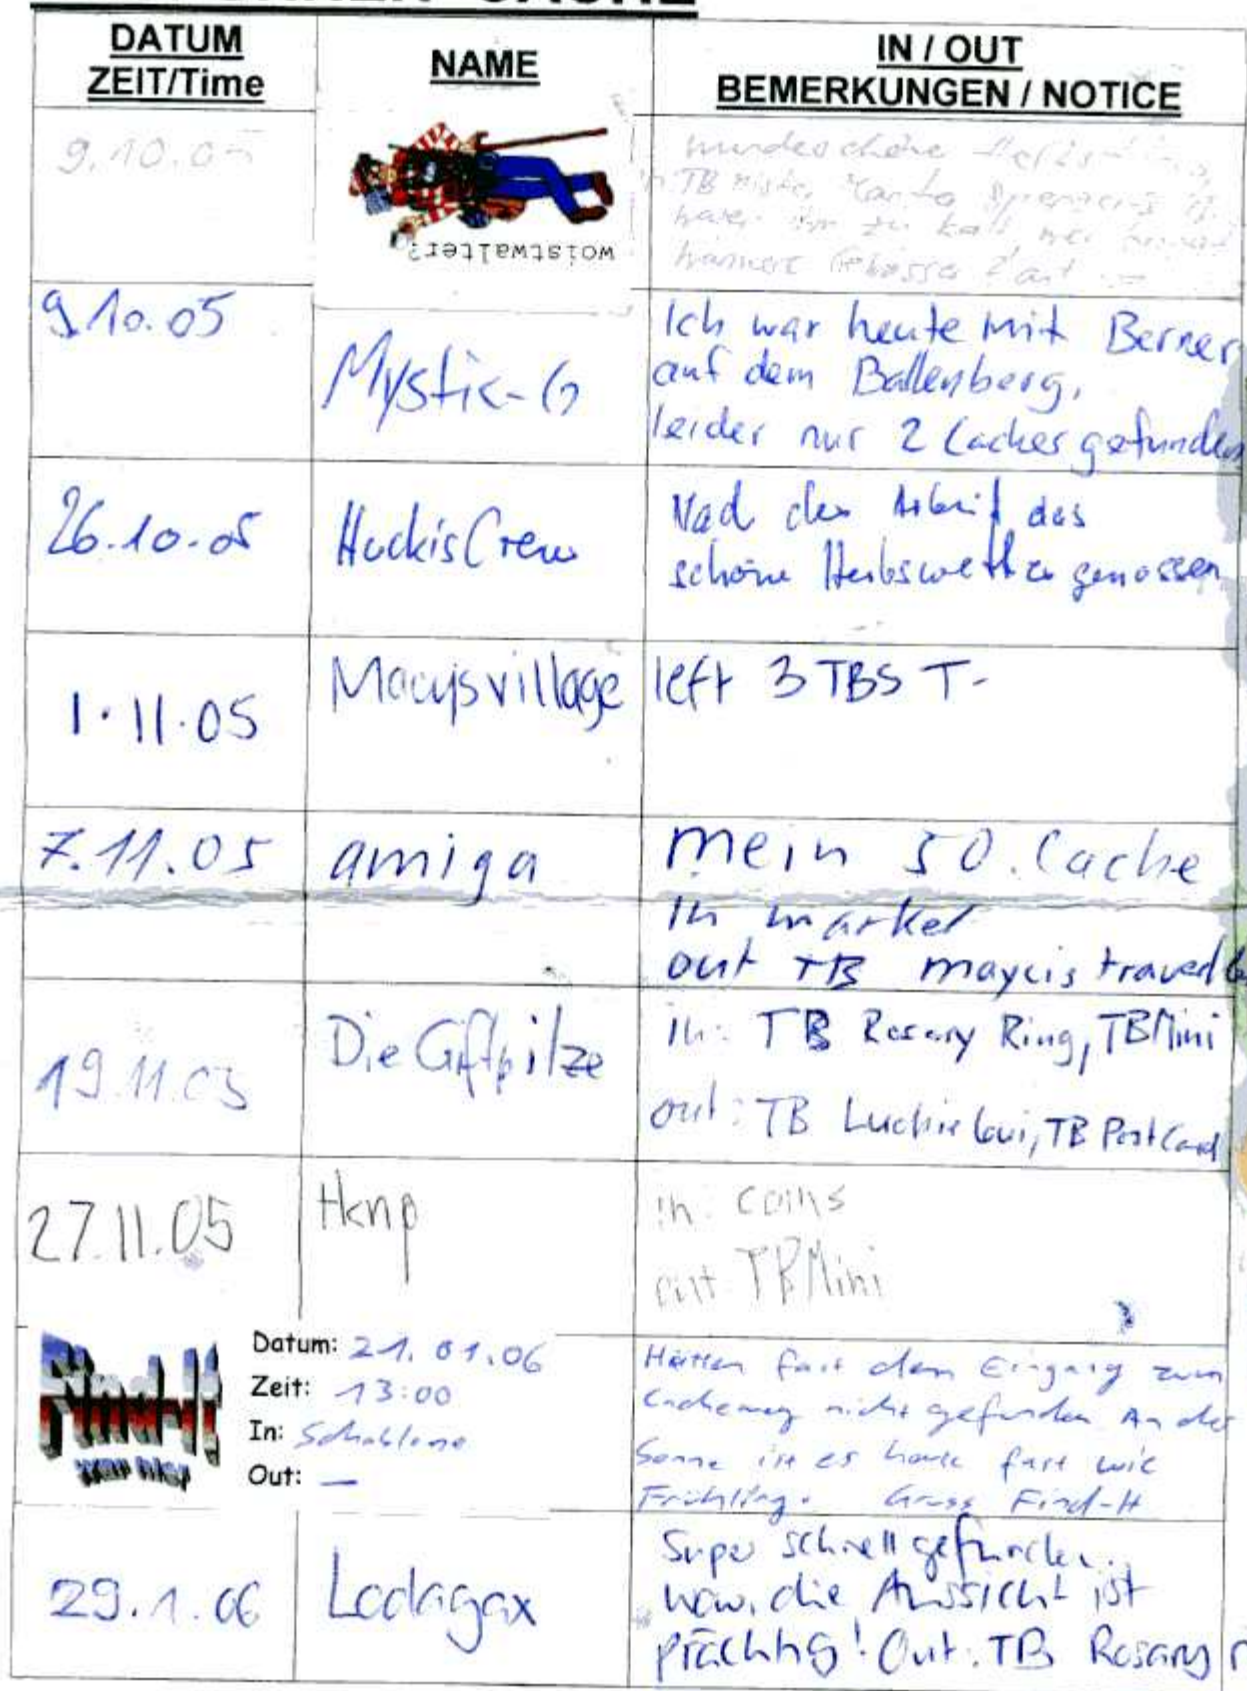 CACHE
DATUM
ZEIT/Time
NAME
IN / OUT
BEMERKUNGEN / NOTICE
9.10.05
woistwalter?
wunderschöne
TB
zu kalt
9.10.05
Mystic-G
Ich war heute mit Berner
auf dem Ballenberg,
leider nur 2 Caches gefunden
26.10.05
HuckisCrew
Nach der Arbeit das
schöne Herbswetter genossen
1.11.05
Macysvillage
left 3 TBS T-
7.11.05
amiga
mein 50. Cache
in market
out TB maycis
19.11.05
Die Giftpilze
in: TB Rosary Ring, TBMini
out: TB TB PostCard
27.11.05
tknp
in: coins
out TBMini
Find-It
Datum: 21.01.06
Zeit: 13:00
In: Schablone
Out: —
Hätten fast den Eingang zum
Cacheweg nicht gefunden An der
Sonne ist es heute fast wie
Frühling. Gruss Find-It
29.1.06
Lodagax
Super schnell gefunden.
wow, die Aussicht ist
prächtig! Out: TB Rosary r